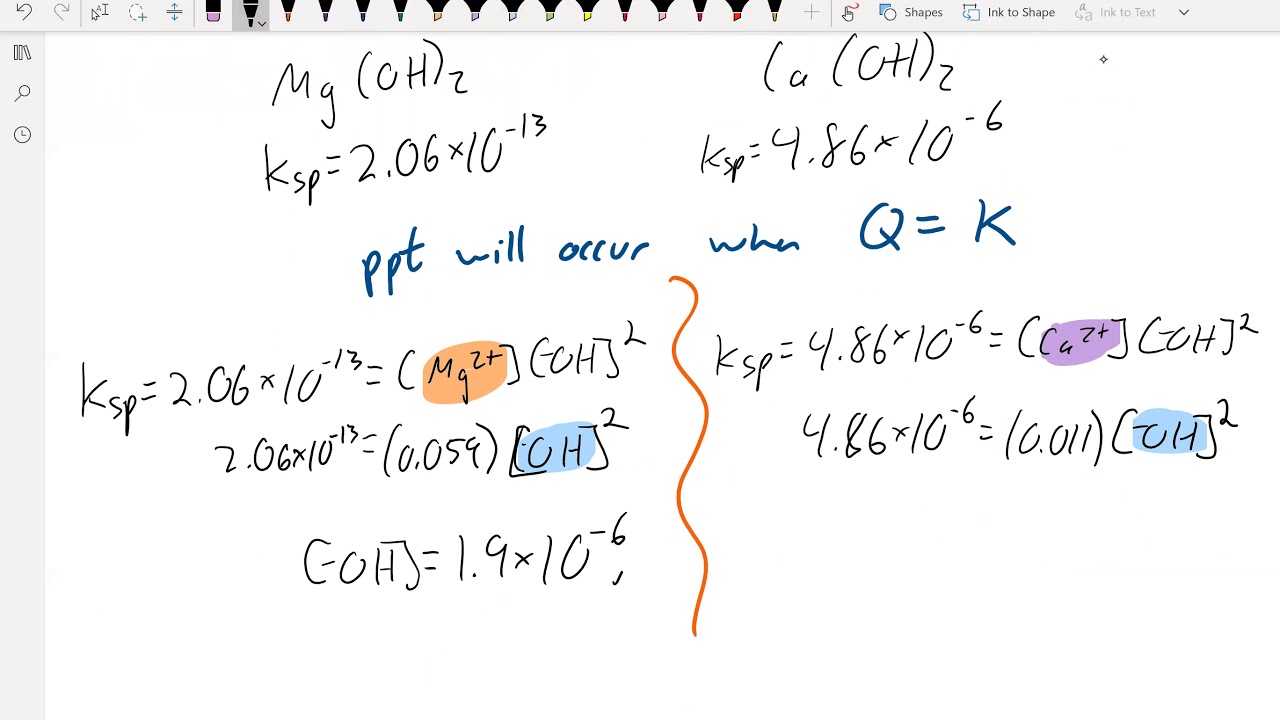 Shapes Ink to Shape Ink to Text
Mg(OH)₂
Ca(OH)₂
Ksp=2.06×10⁻¹³
Ksp=4.86×10⁻⁶
ppt will occur when Q=K
Ksp=2.06×10⁻¹³=[Mg²⁺][⁻OH]²
2.06×10⁻¹³=(0.059)[⁻OH]²
[⁻OH]=1.9×10⁻⁶,
Ksp=4.86×10⁻⁶=[Ca²⁺][⁻OH]²
4.86×10⁻⁶=(0.011)[⁻OH]²